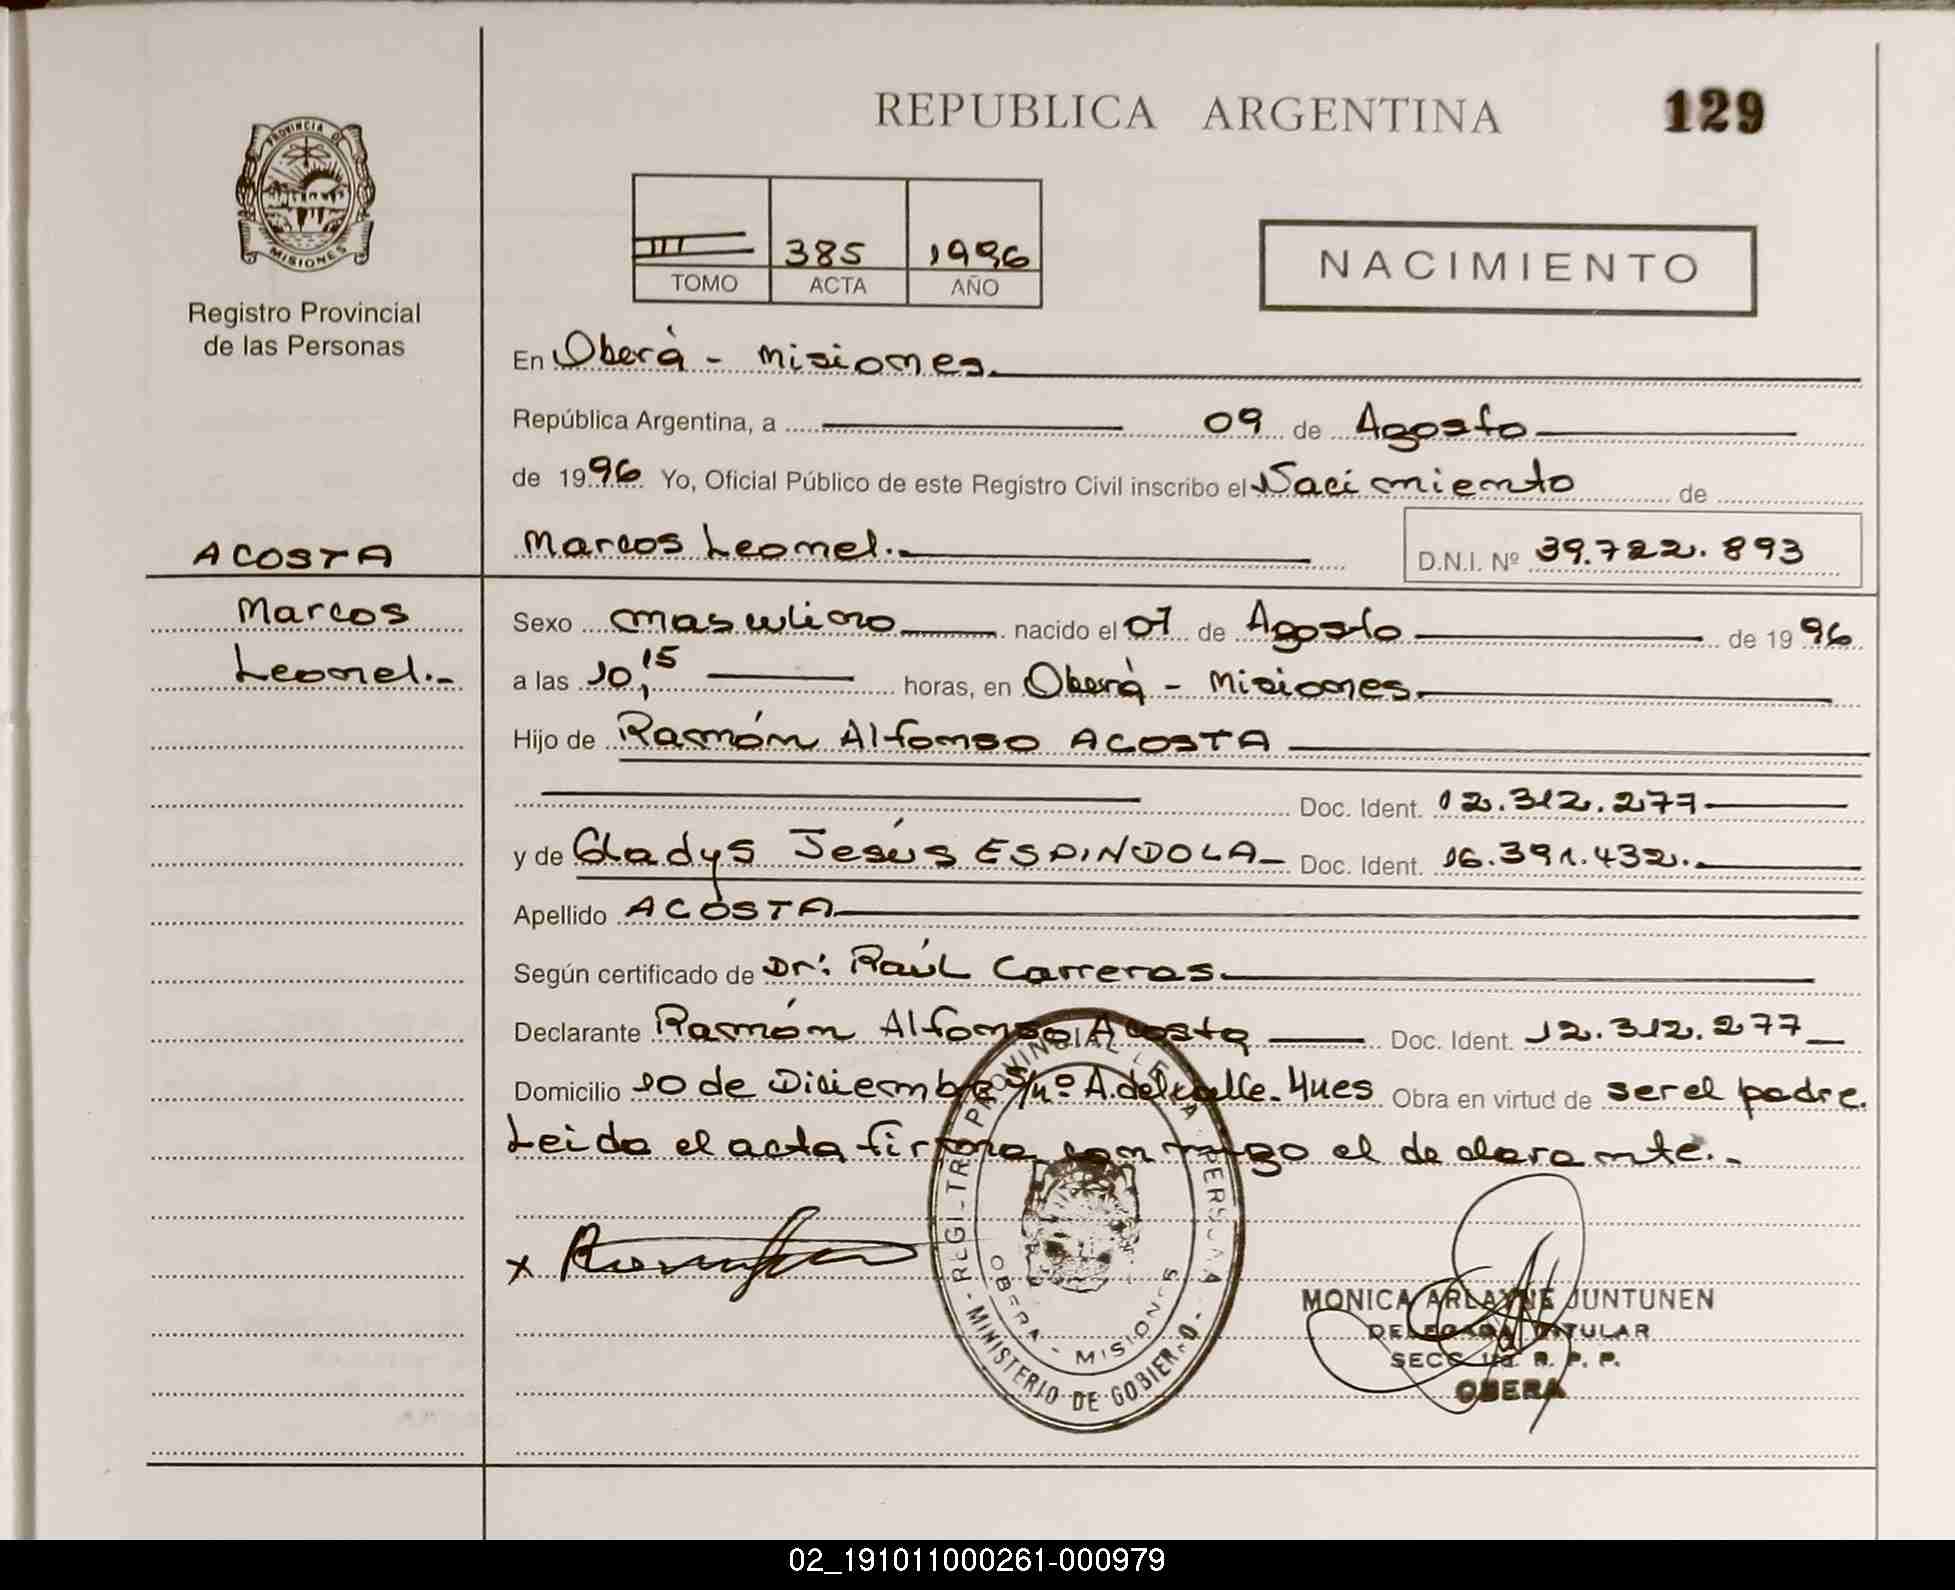 REPUBLICA ARGENTINA
129
PROVINCIA DE
MISIONES
Registro Provincial
de las Personas
III 385 1996
TOMO ACTA AÑO
NACIMIENTO
En Oberá - Misiones.
República Argentina, a 09 de Agosto
de 1996 Yo, Oficial Público de este Registro Civil inscribo el Nacimiento de
ACOSTA
Marcos Leonel.- D.N.I. Nº 39.722.893
Marcos
Leonel.-
Sexo masculino nacido el 07 de Agosto de 1996
a las 10,15 horas, en Oberá - Misiones.
Hijo de Ramón Alfonso ACOSTA
Doc. Ident. 12.312.277
y de Gladys Jesús ESPINDOLA Doc. Ident. 16.391.432.
Apellido ACOSTA
Según certificado de Dr: Raúl Carreras.
Declarante Ramón Alfonso Acosta Doc. Ident. 12.312.277
Domicilio 10 de Diciembre s/nº A. del valle. Mnes Obra en virtud de ser el padre.
Leida el acta firma conmigo el declarante.-
x
MINISTERIO DE GOBIERNO
OBERA - MISIONES
MONICA ARLAYNE JUNTUNEN
DELEGADA TITULAR
SECC. R. P. P.
OBERA
02_191011000261-000979